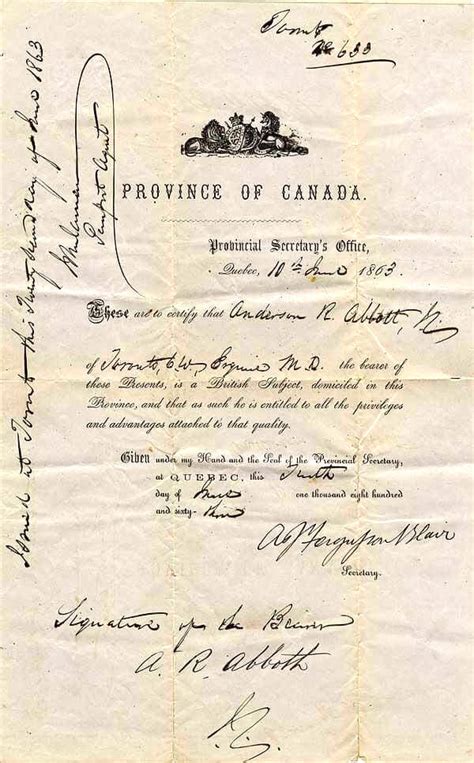 Toronto
No 633
PROVINCE OF CANADA.
Provincial Secretary's Office,
Quebec, 10th June 1863.
These are to certify that Anderson R. Abbott, Jr
of Toronto, C.W., Esquire M.D. the bearer of
these Presents, is a British Subject, domiciled in this
Province, and that as such he is entitled to all the privileges
and advantages attached to that quality.
Given under my Hand and the Seal of the Provincial Secretary,
at QUEBEC, this Tenth
day of June one thousand eight hundred
and sixty-three
A J Fergusson Blair
Secretary.
Signature of the Bearer
A. R. Abbott
Jr.
Issued at Toronto this Twenty second day of June 1863
Passport Agent